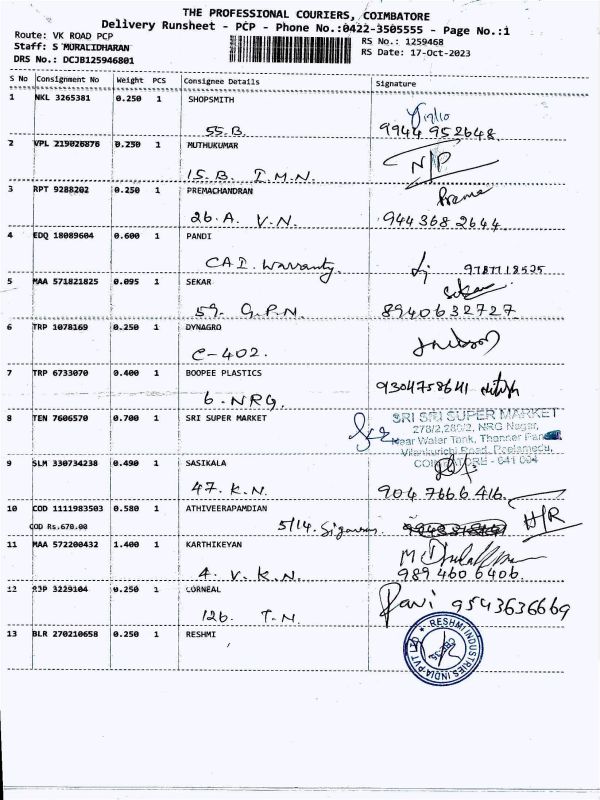 THE PROFESSIONAL COURIERS, COIMBATORE
Delivery Runsheet - PCP - Phone No.:0422-3505555 - Page No.:1
Route: VK ROAD PCP
RS No.: 1259468
Staff: S MURALIDHARAN
RS Date: 17-Oct-2023
DRS No.: DCJB125946801
S No Consignment No Weight PCS Consignee Details Signature
1 NKL 3265381 0.250 1 SHOPSMITH
17/10
55.B. 9944 952648
2 VPL 219026876 0.250 1 MUTHUKUMAR
N/P
15.B. T.M.N.
3 RPT 9288202 0.250 1 PREMACHANDRAN
Prema
26.A. V.N. 944 368 2644
4 EDQ 18089604 0.600 1 PANDI
CAI. Warranty. 9787718525
5 MAA 571821825 0.095 1 SEKAR
Sekar
59. G.P.N. 8940632727
6 TRP 1078169 0.250 1 DYNAGRO
C-402.
7 TRP 6733070 0.400 1 BOOPEE PLASTICS
6.NRG. 9304758641
8 TEN 7606570 0.700 1 SRI SUPER MARKET
SRI SRI SUPER MARKET
278/2,280/2, NRG Nagar,
Near Water Tank, Thanner
Vilankurichi Road, Peelamedu,
COIMBATORE - 641 004
9 SLM 330734238 0.490 1 SASIKALA
47. K.N. 904 7666 416.
10 COD 1111983503 0.580 1 ATHIVEERAPAMDIAN
COD Rs.670.00 5/14. H/R
11 MAA 572200432 1.400 1 KARTHIKEYAN
4. V.K.N. 989 460 6406.
12 RJP 3229104 0.250 1 CORNEAL
126. T.N. Ravi 9543636669
13 BLR 270210658 0.250 1 RESHMI
RESHMI INDUSTRIES INDIA PVT LTD